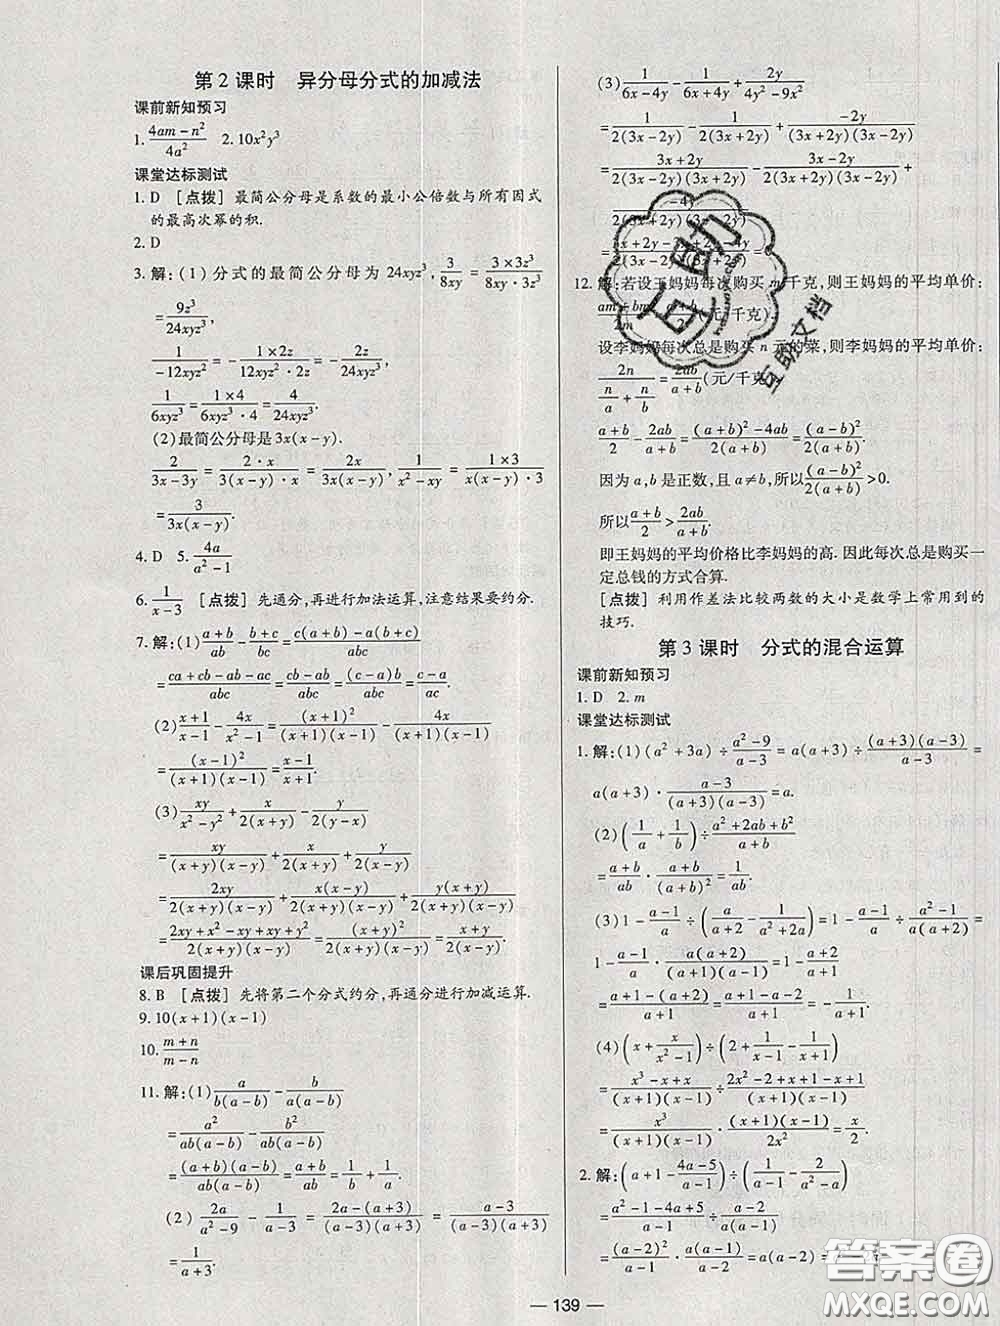 第2课时 异分母分式的加减法
课前新知预习
1. (4am-n²)/(4a²) 2. 10x²y³
课堂达标测试
1. D [点拨] 最简公分母是系数的最小公倍数与所有因式
的最高次幂的积.
2. D
3. 解:(1)分式的最简公分母为 24xyz³, 3/(8xy) = (3×3z³)/(8xy·3z³)
= 9z³/(24xyz³),
1/(-12xyz²) = -(1×2z)/(12xyz²·2z) = -2z/(24xyz³),
1/(6xyz³) = (1×4)/(6xyz³·4) = 4/(24xyz³).
(2)最简公分母是3x(x-y).
2/(3x-3y) = (2·x)/(3(x-y)·x) = 2x/(3x(x-y)), 1/(x²-xy) = (1×3)/(x(x-y)·3)
= 3/(3x(x-y)).
4. D 5. 4a/(a²-1)
6. 1/(x-3) [点拨] 先通分,再进行加法运算,注意结果要约分.
7. 解:(1) (a+b)/(ab) - (b+c)/(bc) = (c(a+b)-a(b+c))/(abc) =
(ca+cb-ab-ac)/(abc) = (cb-ab)/(abc) = (b(c-a))/(abc) = (c-a)/(ac).
(2) (x+1)/(x-1) - 4x/(x²-1) = (x+1)²/((x+1)(x-1)) - 4x/((x+1)(x-1))
= (x-1)²/((x+1)(x-1)) = (x-1)/(x+1).
(3) xy/(x²-y²) + x/(2(x+y)) - y/(2(y-x))
= xy/((x+y)(x-y)) + x/(2(x+y)) + y/(2(x-y))
= 2xy/(2(x+y)(x-y)) + x(x-y)/(2(x+y)(x-y)) + y(x+y)/(2(x+y)(x-y))
= (2xy+x²-xy+xy+y²)/(2(x+y)(x-y)) = (x+y)²/(2(x+y)(x-y)) = (x+y)/(2(x-y)).
课后巩固提升
8. B [点拨] 先将第二个分式约分,再通分进行加减运算.
9. 10(x+1)(x-1)
10. (m+n)/(m-n)
11. 解:(1) a/(b(a-b)) - b/(a(a-b))
= a²/(ab(a-b)) - b²/(ab(a-b))
= ((a+b)(a-b))/(ab(a-b)) = (a+b)/(ab) = 1/b + 1/a.
(2) 2a/(a²-9) - 1/(a-3) = (2a-(a+3))/((a-3)(a+3)) = (a-3)/((a-3)(a+3)) =
1/(a+3).
(3) 1/(6x-4y) - 1/(6x+4y) + 2y/(4y²-9x²)
= 1/(2(3x-2y)) - 1/(2(3x+2y)) + (-2y)/((3x+2y)(3x-2y))
= (3x+2y)/(2(3x+2y)(3x-2y)) - (3x-2y)/(2(3x+2y)(3x-2y)) +
(-4y)/(2(3x+2y)(3x-2y))
12. 解:若设王妈妈每次购买m千克,则王妈妈的平均单价:
(am+bm)/(2m) = (a+b)/2 (元/千克).
设李妈妈每次总是购买n元的菜,则李妈妈的平均单价:
2n/(n/a + n/b) = 2ab/(a+b) (元/千克)
(a+b)/2 - 2ab/(a+b) = ((a+b)²-4ab)/(2(a+b)) = (a-b)²/(2(a+b)).
因为a,b是正数,且a≠b,所以 (a-b)²/(2(a+b)) > 0.
所以 (a+b)/2 > 2ab/(a+b).
即王妈妈的平均价格比李妈妈的高.因此每次总是购买一
定总钱的方式合算.
[点拨] 利用作差法比较两数的大小是数学上常用到的
技巧.
第3课时 分式的混合运算
课前新知预习
1. D 2. m
课堂达标测试
1. 解:(1)(a²+3a) ÷ (a²-9)/(a-3) = a(a+3) ÷ ((a+3)(a-3))/(a-3) =
a(a+3) · (a-3)/((a+3)(a-3)) = a.
(2) (1/a + 1/b) ÷ (a²+2ab+b²)/(a+b)
= (a+b)/(ab) · (a+b)/(a+b)² = 1/(ab).
(3) 1 - (a-1)/a ÷ (a/(a+2) - 1/(a²+2a)) = 1 - (a-1)/a ÷ (a²-1)/(a(a+2)) =
1 - (a-1)/a · (a(a+2))/((a+1)(a-1))
= (a+1-(a+2))/(a+1) = (a+1-a-2)/(a+1) = -1/(a+1).
(4) (x + x/(x²-1)) ÷ (2 + 1/(x-1) - 1/(x+1))
= (x³-x+x)/((x+1)(x-1)) ÷ (2x²-2+x+1-x+1)/((x+1)(x-1))
= x³/((x+1)(x-1)) · ((x+1)(x-1))/(2x²) = x/2.
2. 解:(a+1 - (4a-5)/(a-1)) ÷ (1/(a-1) - 2/(a²-a))
= (a²-1-4a+5)/(a-1) ÷ (a-2)/(a(a-1))
= (a-2)²/(a-1) · (a(a-1))/(a-2) = a(a-2) =
139
互助
互助文档
答案圈
MXQE.COM